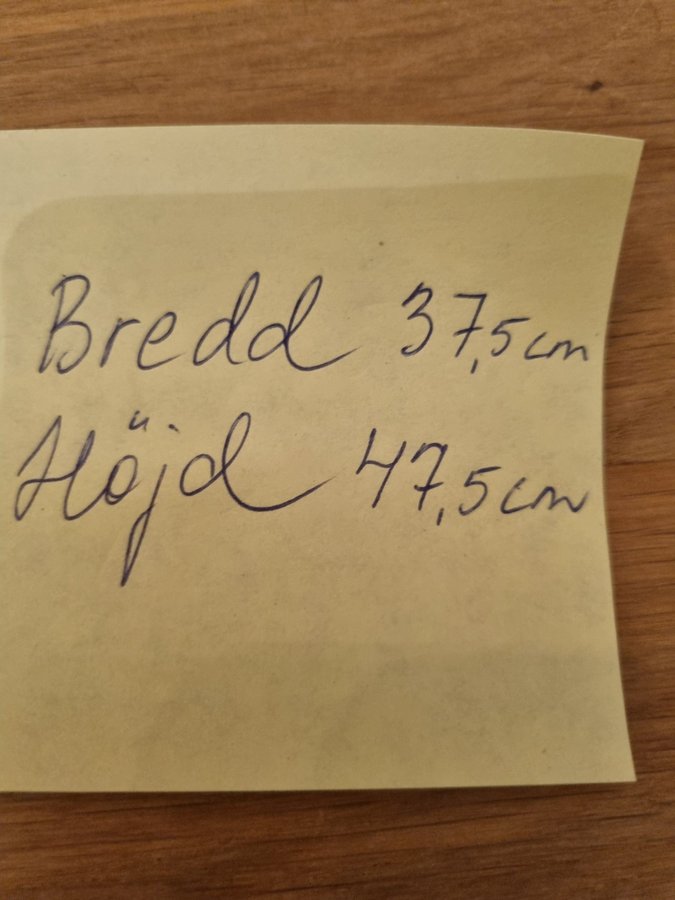 Bredd 37,5cm
Höjd 47,5cm